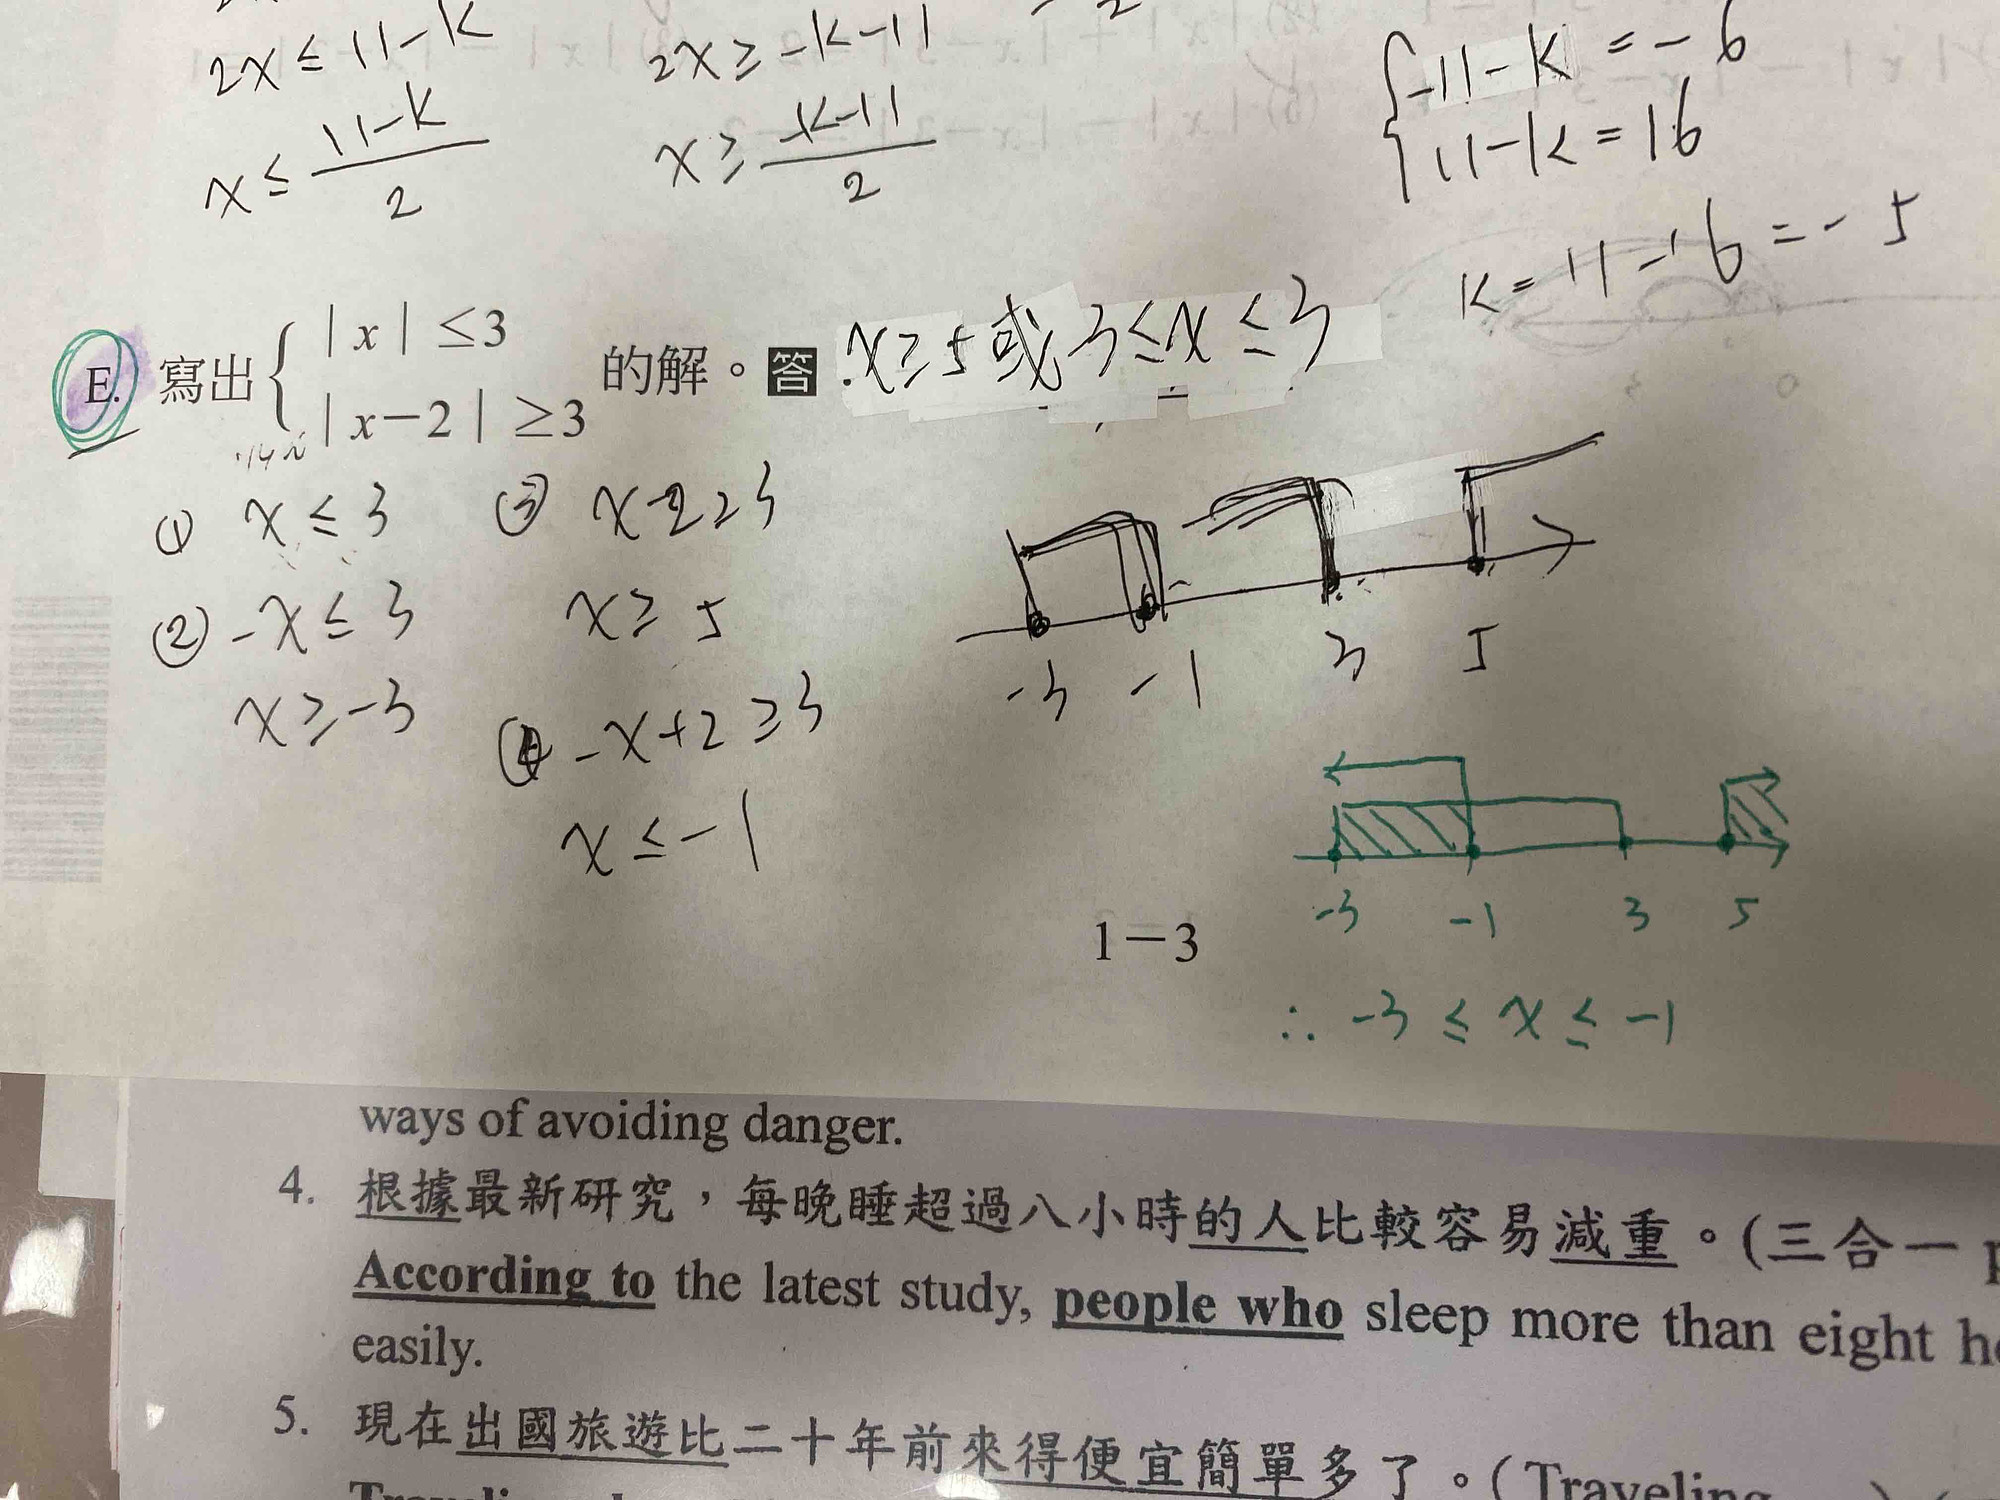 2x ≤ 11-k
x ≤ \frac{11-k}{2}
2x ≥ -k-11
x ≥ \frac{-k-11}{2}
{ -11-k = -6
11-k = 16
k = 11-16 = -5
E. 寫出 { |x| ≤3
|x-2| ≥3
的解。答 x≥5 或 3≤x≤3
① x ≤ 3
② -x ≤ 3
x ≥ -3
③ x-2≥3
x ≥ 5
④ -x+2 ≥3
x ≤ -1
-3 -1 3 5
-3 -1 3 5
∴ -3 ≤ x ≤ -1
1-3
ways of avoiding danger.
4. 根據最新研究，每晚睡超過八小時的人比較容易減重。(三合一
According to the latest study, people who sleep more than eight
easily.
5. 現在出國旅遊比二十年前來得便宜簡單多了。(Traveling